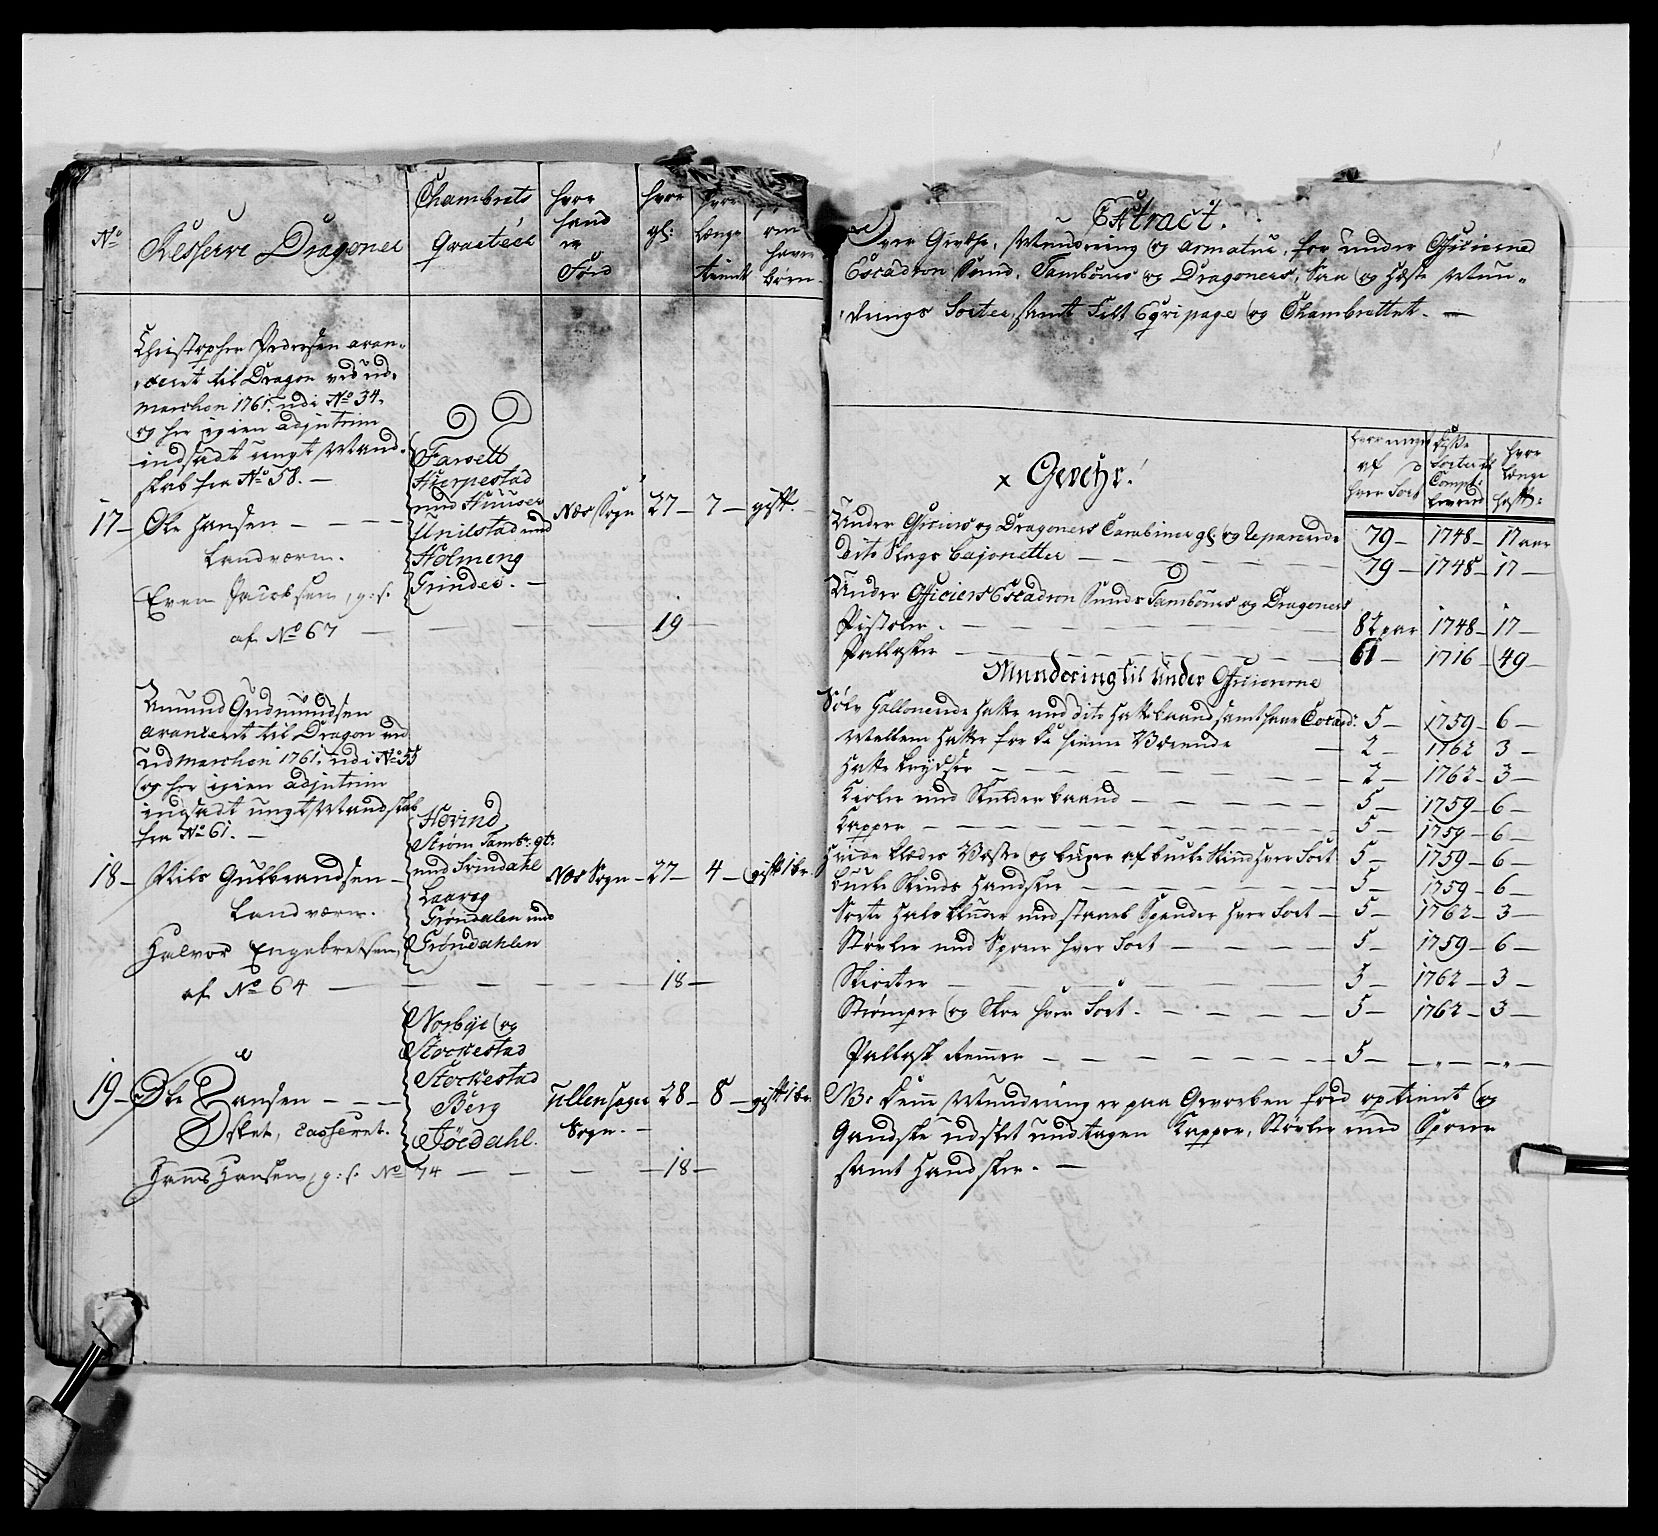 No
Resserve Dragoner
Chambrets
Qvarteer
hvor
hand
er
Föed
hvor
gl:
hvor
længe
tient
om
haver
børn
Christopher Pedersen avan-
ceret til Dragon ved ud-
marchen 1761. udi No 34.
og her igien adjutrim
indsadt ungt Mand-
skab fra No 58. —
17 — Ole Hansen — — — —
Landværn.
Farsett
Hierpestad
med Huuser
Unilstad med
Holmeng
Grinder. —
Næs Sogn 27 — 7 — gift.
Even Jacobsen, g: s.
af No 67 — — — — — 19 —
Amund Gudmundsen
avanceret til Dragon ved
udmarchen 1761. udi No 55
og her igien adjutrim
indsadt ungt Mandskab
fra No 61. —
18 — Nils Gulbrandsen —
Landværn.
Hovind
Strøm Tambr. qtr.
med Svindahl
Laavog
Grøndalen med
Grøndahlen
Næs Sogn — 27 — 4 — gift 1 br.
Halvor Engebretsen,
af No 64 — — — — — 18 —
19 — Ole Hansen — — —
Østet, Casseret.
Norbye og
Stockestad
Stockestad
Berg
Jördahl.
Ullensager
Sogn. —
28 — 8 — gift 1 br.
Hans Hansen, g: s. No 74 — — — — 18 —
Extract.
Over Gevehr, Mundering og armatur, for Under Officierne
Escadron Smid, Tambours og Dragoners, Saa og Heste Mun-
derings Sorter, samt Felt Eqvipage og Chambrettet. —
hvor mange
af
hver Sort
disse
Sorter til
Comp:
leverd
hvor
længe
hafft:
x Gevehr!
Under Officiers og Dragoners Carabiner gl: og reparerede 79 — 1748 — 17 aar
dito Slags Bajonetter — — — — — 79 — 1748 — 17 —
Under Officiers Escadron Smids Tambours og Dragoners
Pistoler. — — — — — 82 par 1748 — 17 —
Pallasker — — — — — 61 — 1716 — 49 —
Mundering til Under Officiererne
Sølv Gallonerede Hatte med dito Hatte baand samt haar Cocard: 5 — 1759 — 6 —
Mallem Hatte for de hiemme Værende — 2 — 1762 — 3 —
Hatte Krydser — — — — — 2 — 1762 — 3 —
Kioler med Skulder baand — — — — 5 — 1759 — 6 —
Kapper — — — — — 5 — 1759 — 6 —
Hvide Klædes Veste og buxer af bucke Skind hver Sort 5 — 1759 — 6 —
bucke Skinds Handsker — — — — 5 — 1759 — 6 —
Sorte Hals Kluder med staael Spender hver Sort — 5 — 1762 — 3 —
Støvler med Sporer hver Sort — — — — 5 — 1759 — 6 —
Skiorter — — — — — 5 — 1762 — 3 —
Strømper og Skoe hver Sort. — — — — 5 — 1762 — 3 —
Pallask Remmer — — — — — 5 — — „ — — „ —
NB: denne Mundering er paa Gevorben foed optient og
Gandske udslet undtagen Kapper, Støvler med Sporer
samt Handsker. —